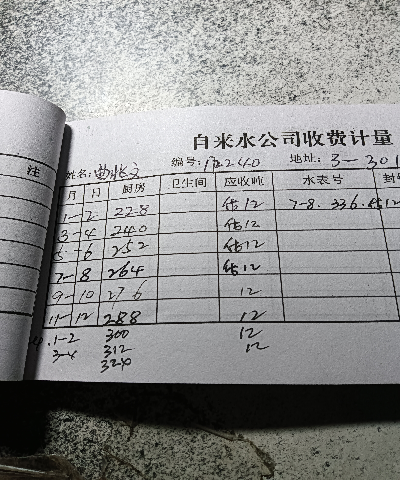 自来水公司收费计量
注
姓名: 编号: 2240 地址: 3-301
月 日 厨房 卫生间 应收吨 水表号 封
1-2 228 估12 7-8. 336. 估12
3-4 240 估12
5-6 252 估12
7-8 264 估12
9-10 276 12
11-12 288 12
1-2 300 12
3-4 312 12
324